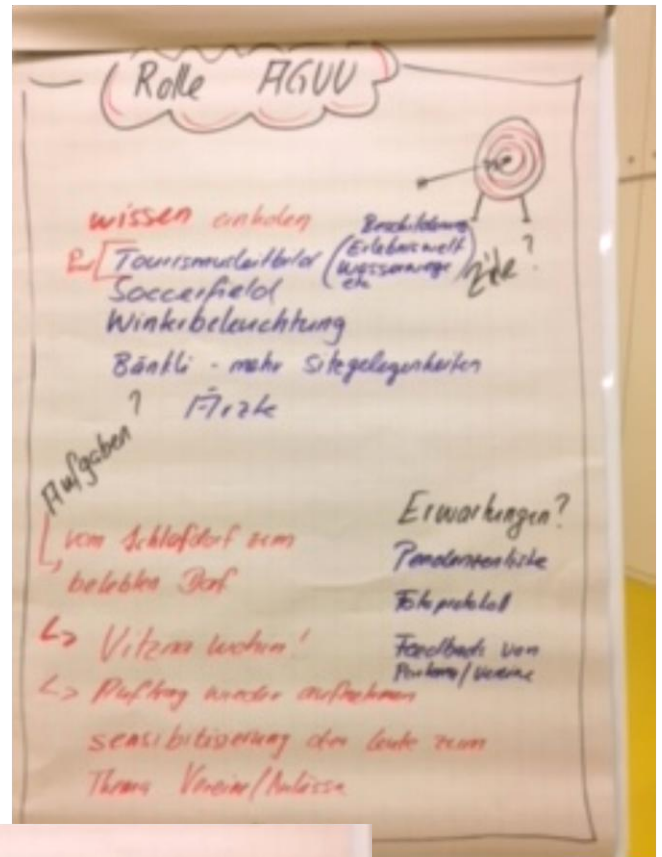 Rolle AGUV
wissen einholen
Beschilderung
Tourismusleitbild (Erlebniswelt
Wasserwege
etc
Ziele?
Soccerfield
Winterbeleuchtung
Bänkli - mehr Sitzgelegenheiten
Ärzte
Aufgaben?
vom Schlafdorf zum
belebten Dorf
Vitznau wohin!
Auftrag wieder aufnehmen
sensibilisierung der Leute zum
Thema Vereine/Anlässe
Erwartungen?
Pendenzenliste
Fotoprotokoll
Feedback von
/Vereine